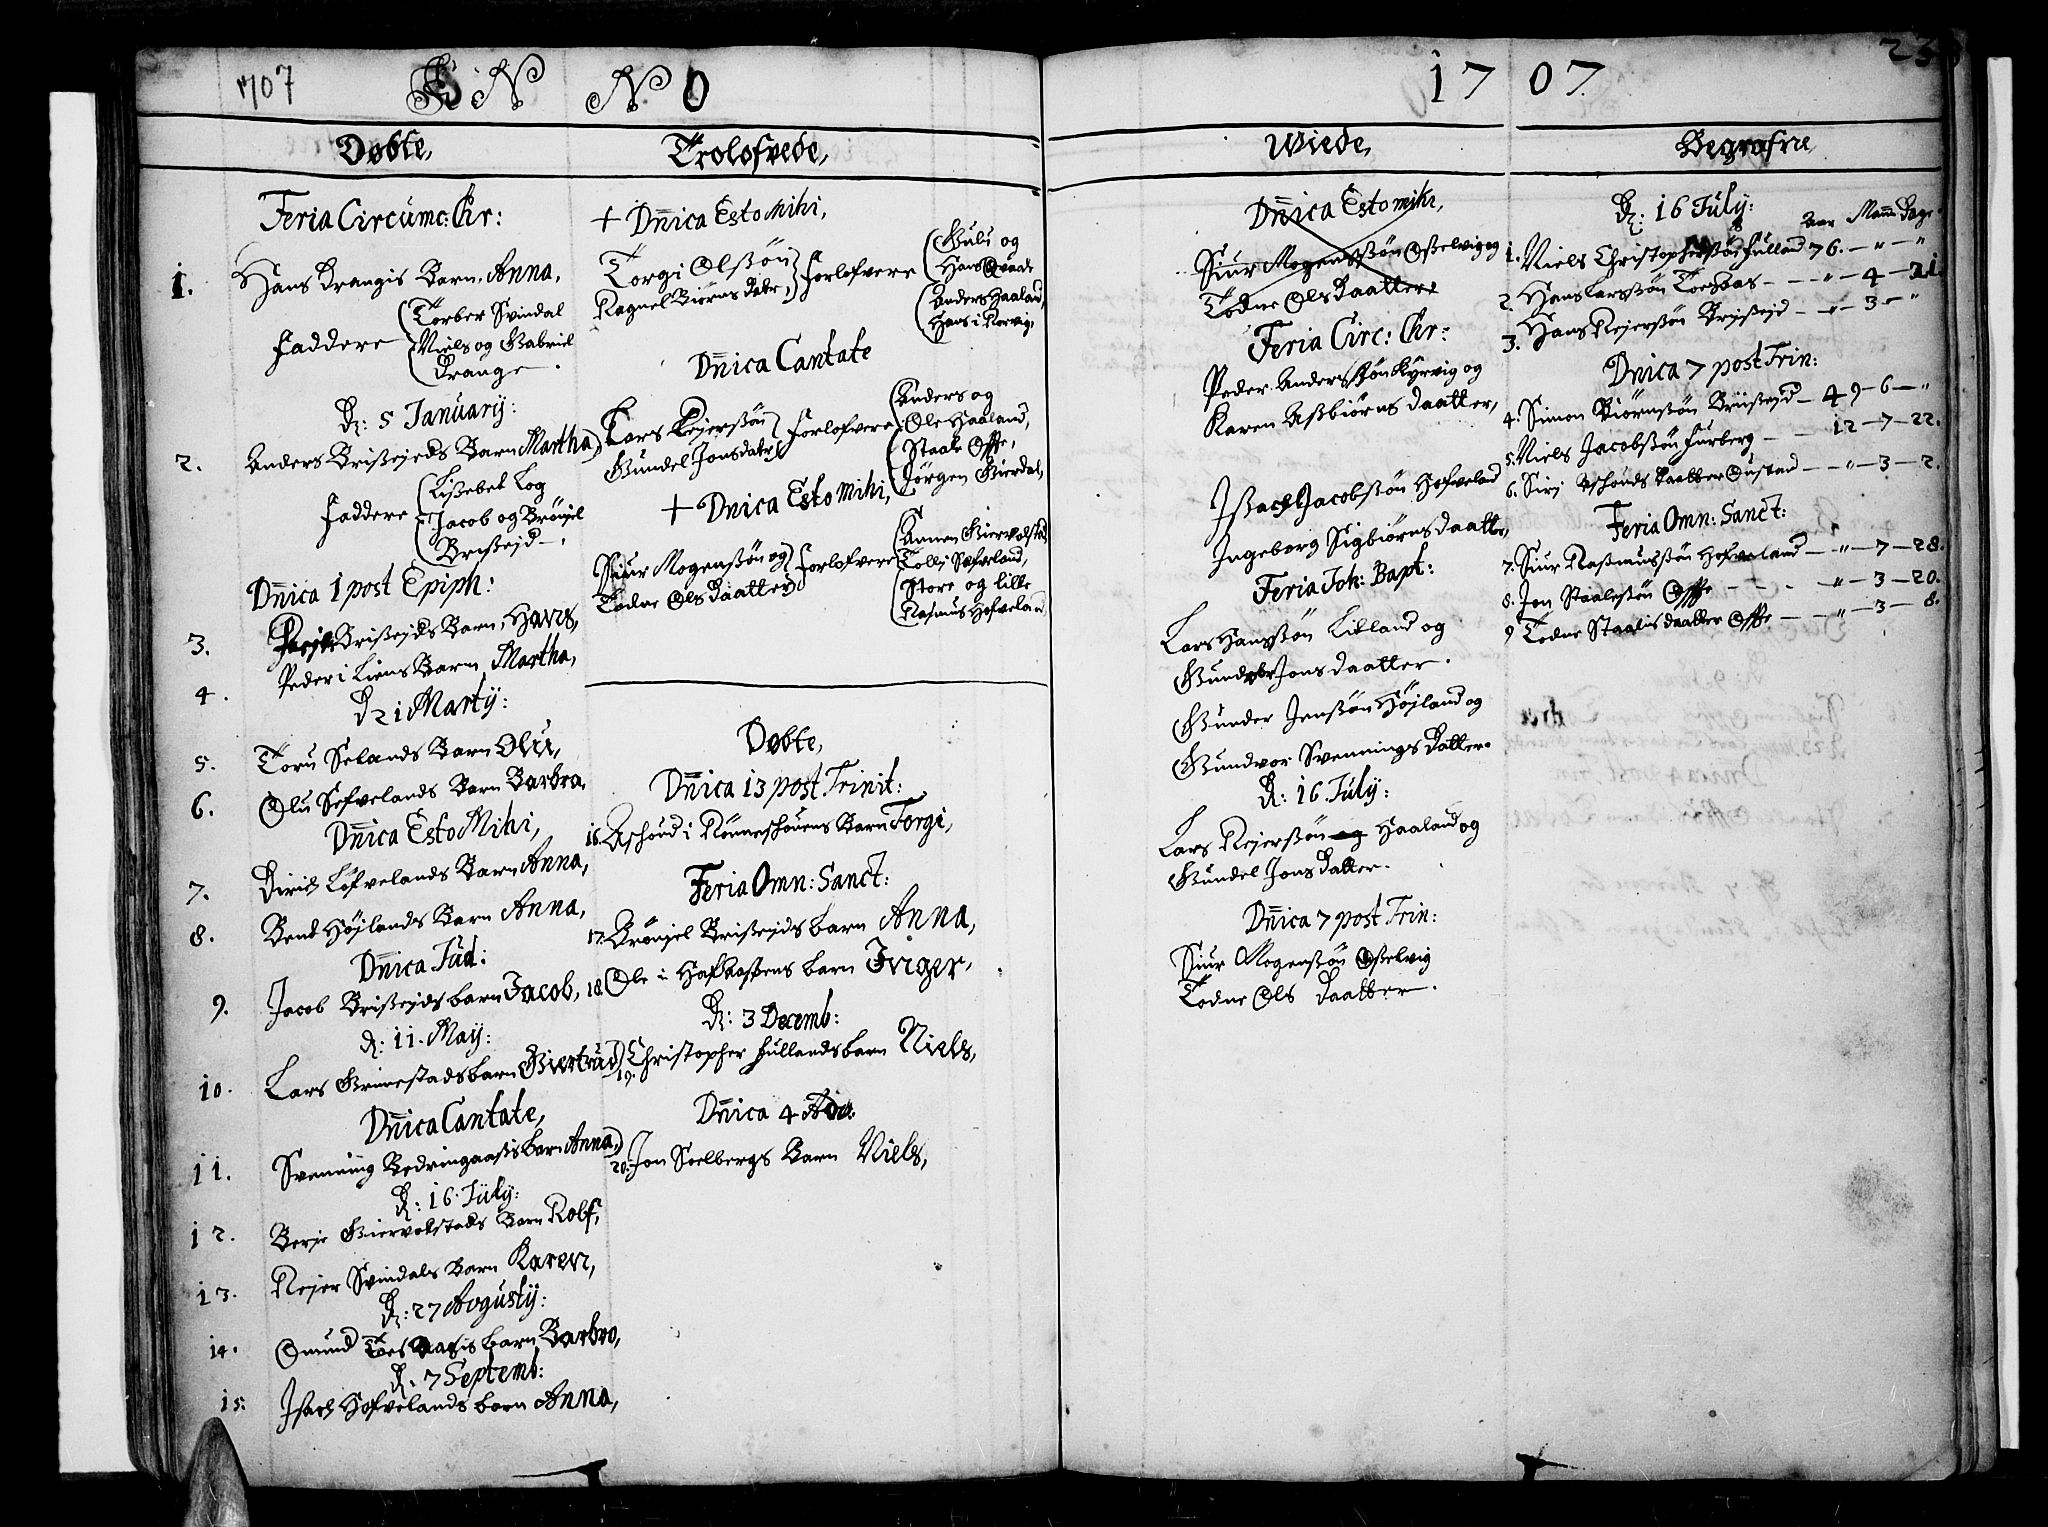 1707 ANNO
Døbte,
Feria Circumc: Chr:
1. Hans Drangis Barn, Anna,
Faddere
Torber Svindal
Niels og Gabriel
Drange.
D: 5 January:
2. Anders Brißejds Barn Martha,
Faddere
Lißebet Log
Jacob og Brønjel
Brißejd
Dnica 1 post Epiph:
3. Brißejds Barn, Hans,
4. Peder i Liens Barn Martha,
D 21 Marty:
5. Toru Selands Barn Olu,
6. Olu Sefvelands Barn Barbra,
Dnica Esto Mihi,
7. Dirich Løfvelands Barn Anna,
8. Bent Højlands Barn Anna,
Dnica Jud:
9. Jacob Brißejds barn Jacob,
D: 11. May:
10. Lars Grimestads barn Giertrud
Dnica Cantate,
11. Svenning Bedringaaßis barn Anna,
D: 16 July:
12. Berje Giervolstads Barn Rolf,
13. Rejer Svindals Barn Karen,
D: 27 Avgusty:
14. Omund barn Barbro,
D: 7 Septemb:
15. Isach Hofvelands barn Anna,
Trolofvede,
+ Dnica Esto Mihi,
Torgi Olßøn
Ragnel Biørns datr,
Forlofvere
Guli og
Hans Qvade
Anders Haaland,
Hans i Rervig,
Dnica Cantate
Lars Rejerßøn
Gundel Jonsdatr
Forlofvere
Anders og
Ole Haaland,
Staale Offte,
Jørgen Gierdal,
+ Dnica Esto Mihi,
Siur Mogenßøn og
Todne Ols Daatter
Forlofvere
Aamon Giervolstad
Tolli Sefveland,
Store og lille
Rasmus Hofveland
Døbte,
Dnica 13 post Trinit:
16. Aschoud i Rønneschouens Barn Torgi,
Feria Omn: Sanct:
17. Brønjel Brißejds barn Anna,
18. Ole i barn Inger,
D: 3 Decemb:
19. Christopher Hullands barn Niels,
Dnica 4 Adv:
20. Jon Soelbergs Barn Niels,
1707. 23
Wiede,
Dnica Esto mihi,
Siur Mogensßøn Oßelvig og
Todne Ols Daatter
Feria Circ: Chr:
Peder Andersßøn Kyrvig og
Karen Aßbiørns Daatter,
Isßach Jacobsßøn Hofveland
Ingeborg Sigbiørns Daatt,
Feria Joh: Bapt:
Lars Hansßøn Lilland og
Gundvor Jons Daatter.
Gunder Jensßøn Højland og
Gundvor Svennings Datter.
D: 16 July:
Lars Rejersßøn og Haaland og
Gundel Jons Datter.
Dnica 7 post Trin:
Siur Mogensßøn Oßelvig
Todne Ols Daatter.
Begrafne
D: 16 July:
Aar Maan Dage
1. Niels Christophersßøn Hulland 76. — " — "
2. Hans Larsßøn — " — 4 — 21.
3. Hans Rejersßøn Brißejd — " — 3 — "
Dnica 7 post Trin:
4. Simon Biørnsßøn Brißejd — 49 — 6 — "
5. Niels Jacobsßøn Furberg — 12 — 7 — 22.
6. Siri Aschouds Daatter Oustad — " — 3 — 2.
Feria Omn: Sanct:
7. Siur Rasmusßøn Hofveland — " — 7 — 28.
8. Jon Staaleßøn Offte — " — 3 — 20.
9 Todne Staalis daatter Offte — " — 3 — 8.